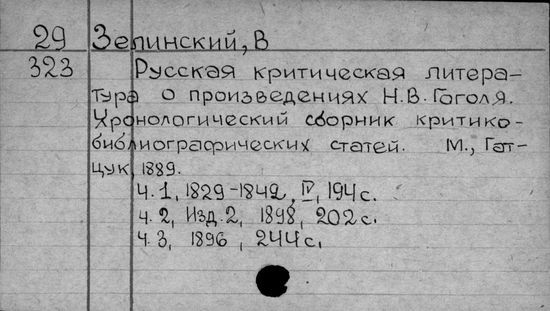 29 Зелинский, В
323 Русская критическая литера-
тура о произведениях Н.В. Гоголя.
Хронологический сборник критико-
библиографических статей. М., Гат-
цук, 1889.
ч. 1, 1829-1842, IV, 194 с.
ч. 2, Изд. 2, 1898, 202 с.
ч. 3, 1896, 244 с.